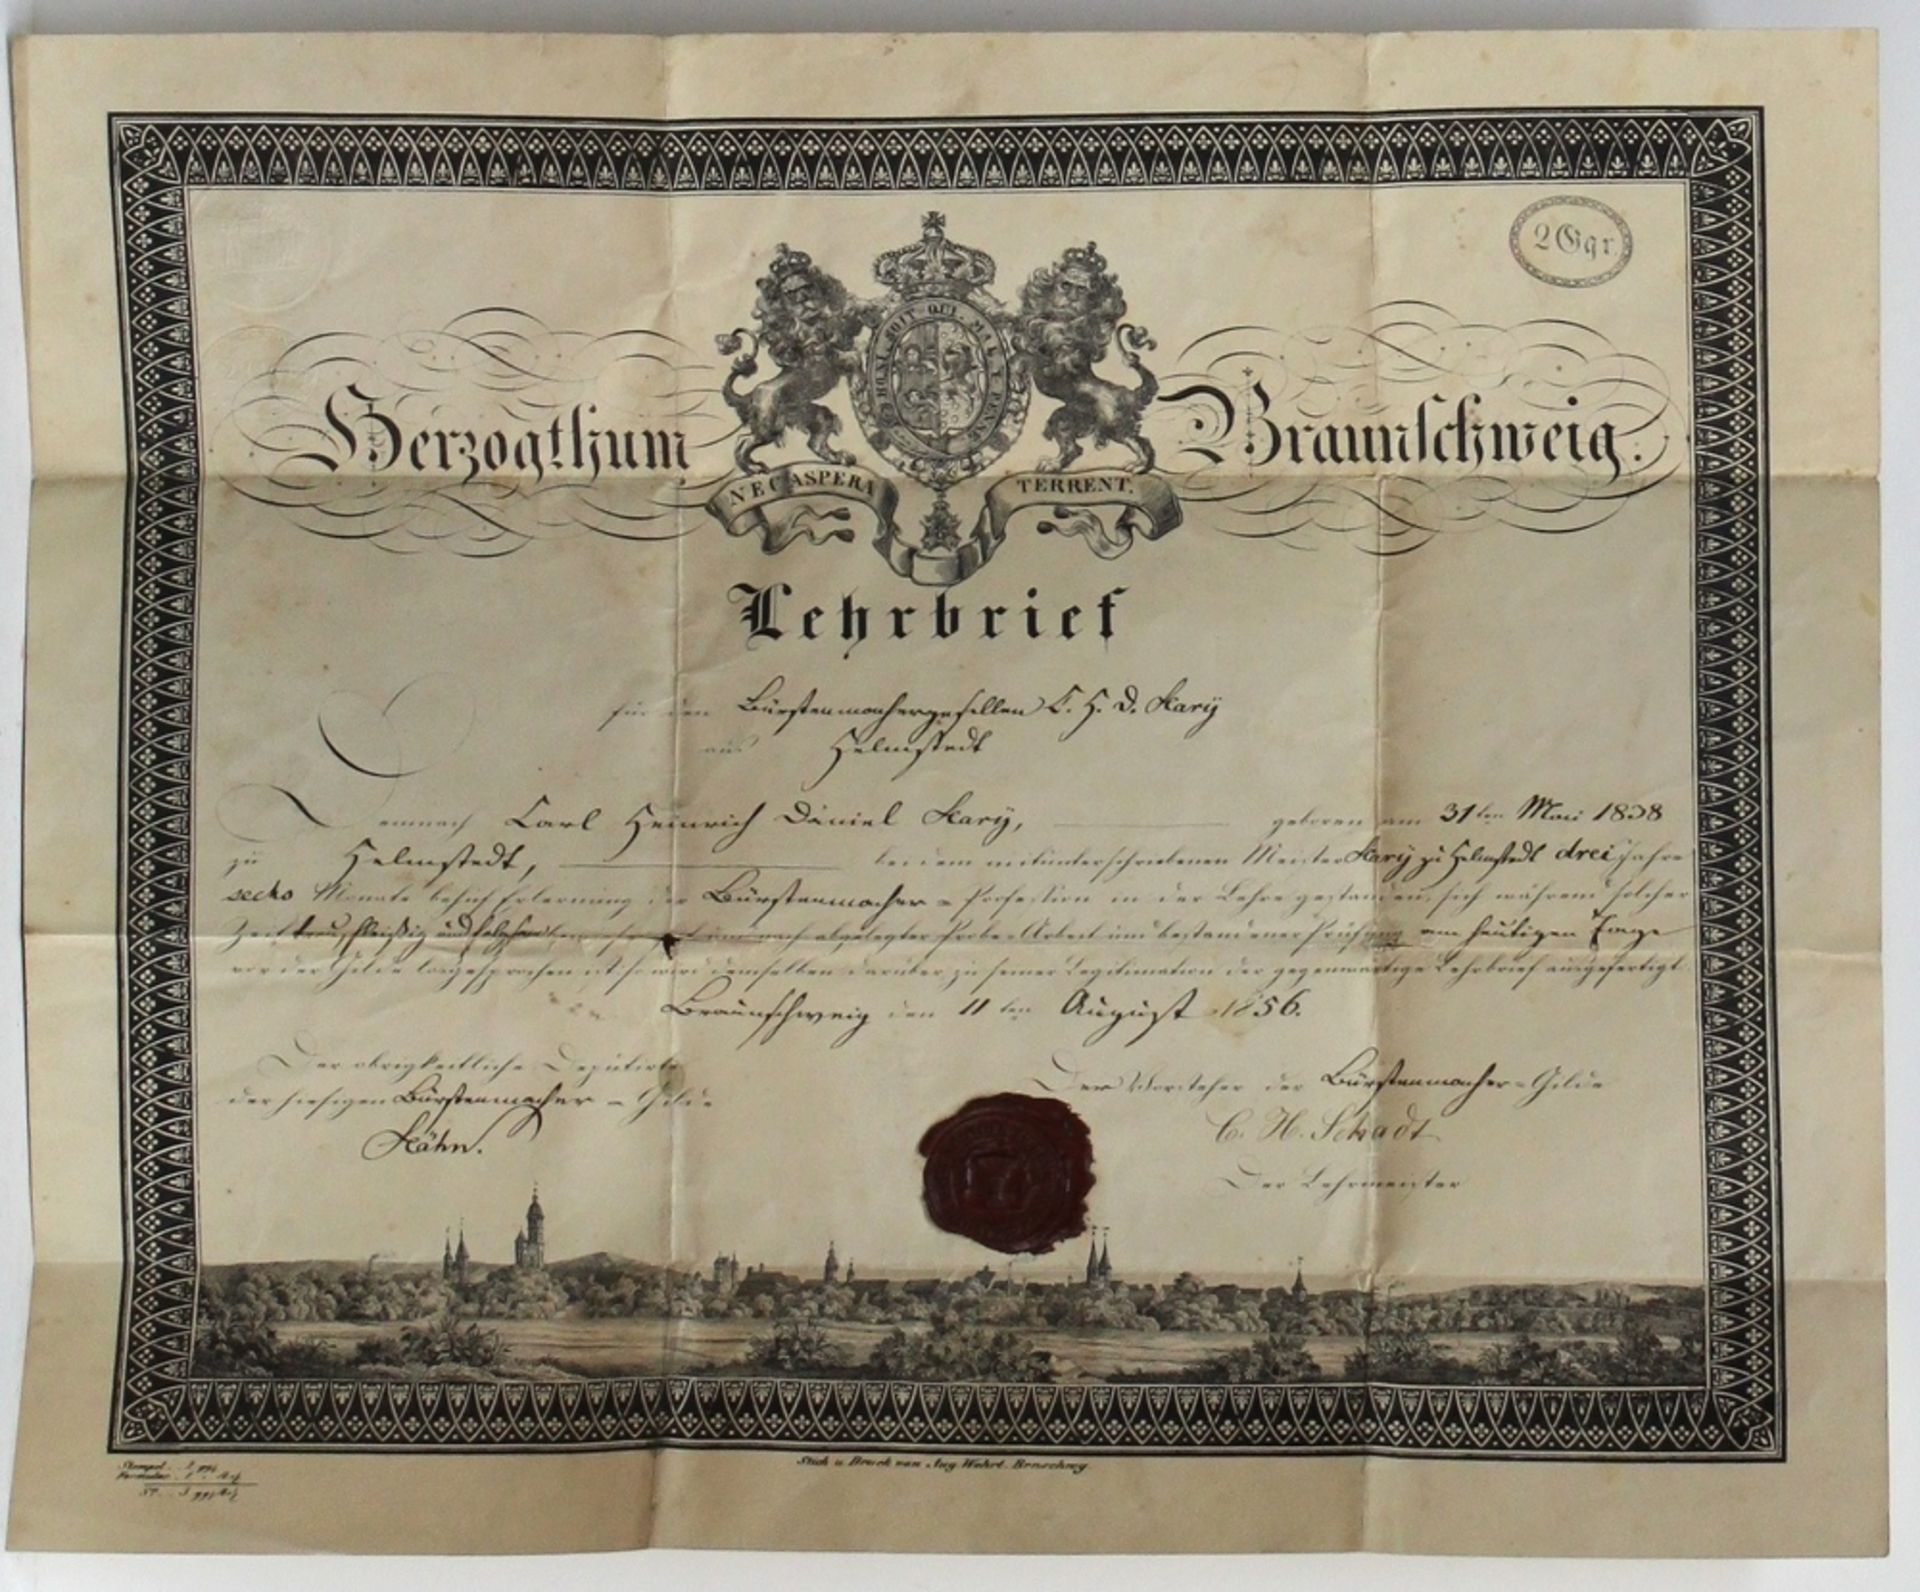 2 Ggr.
HONI. SOIT. QUI. MAL. Y. PENSE
Herzogthum Braunschweig.
NEC ASPERA TERRENT.
Lehrbrief
für den Bürstenmachergesellen C. H. D. Kary
aus Helmstedt
Demnach Carl Heinrich Daniel Kary, geboren am 31ten Mai 1838
zu Helmstedt, bei dem mitunterschriebenen Meister Kary zu Helmstedt drei Jahre
sechs Monate behuf Erlernung der Bürstenmacher-Profession in der Lehre gestanden, sich während solcher
Zeit treu, fleißig und nach abgelegter Probe-Arbeit und bestandener Prüfung am heutigen Tage
vor der Gilde losgesprochen ist: so wird demselben darüber zu seiner Legitimation der gegenwärtige Lehrbrief ausgefertigt
Braunschweig den 11ten August 1856.
Der obrigkeitliche Deputirte
der hiesigen Bürstenmacher-Gilde
Der Vorsteher der Bürstenmacher-Gilde
C. H. Schadt
Der Lehrmeister
Stich u Druck von Aug Wehrt. Brnschwg
Stempel
Formular